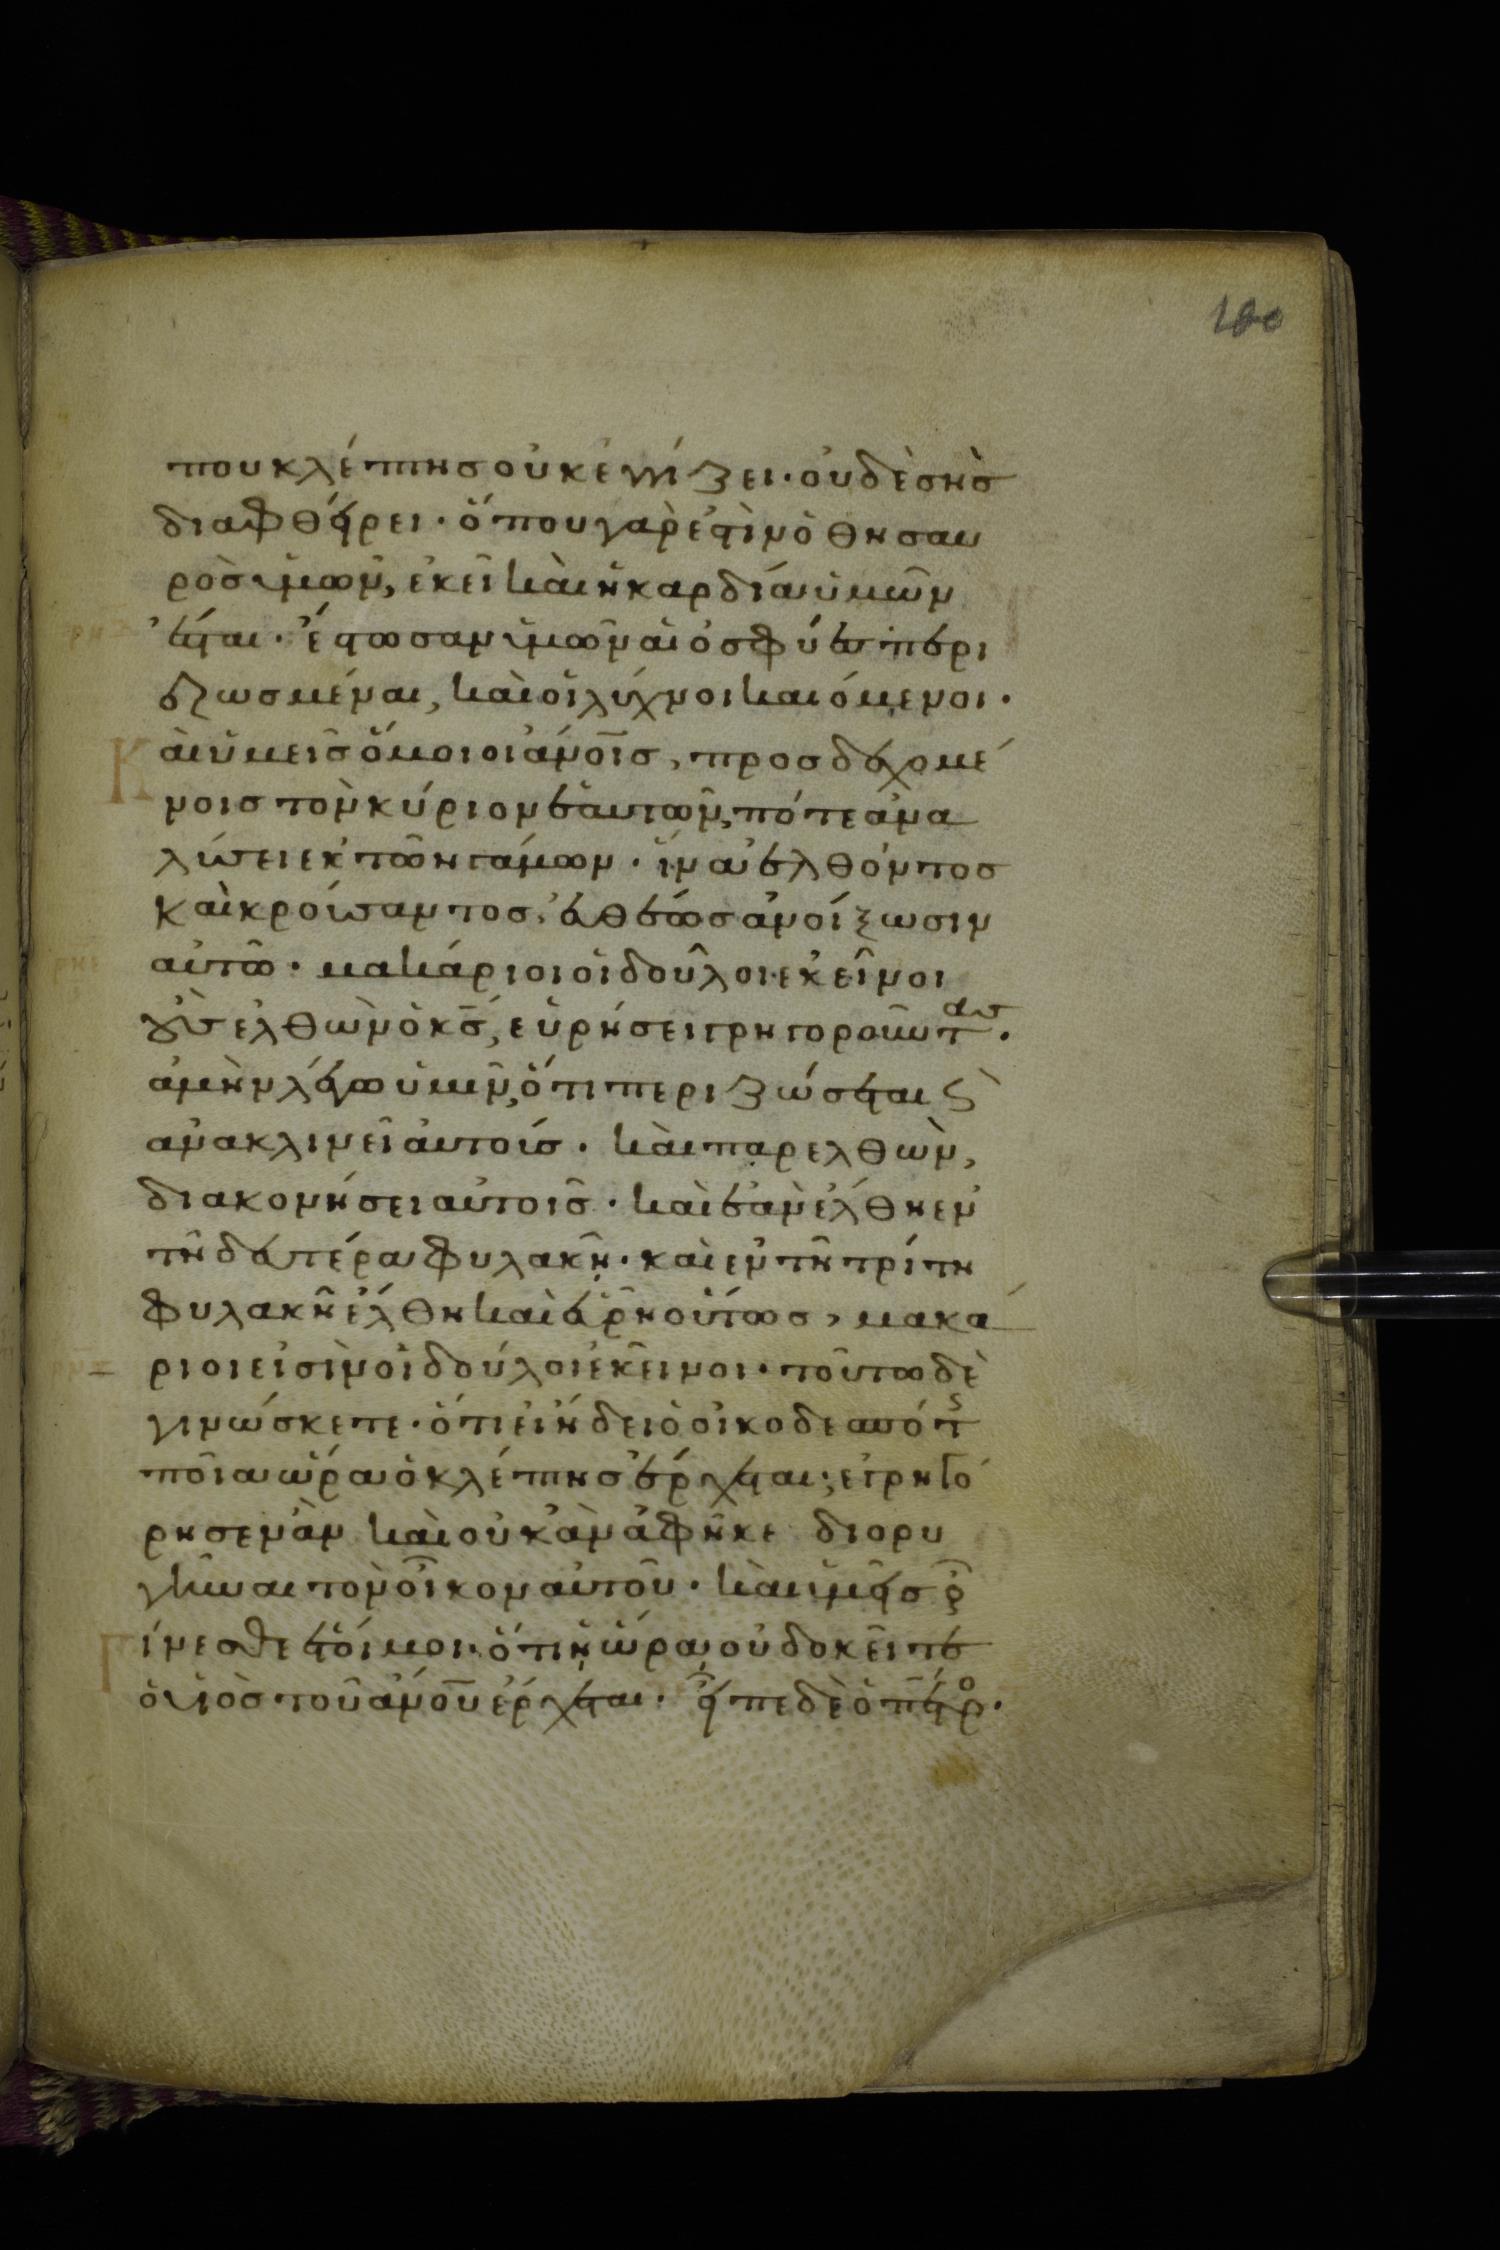 180
που κλέπτης οὐκ ἐγγίζει· οὐδὲ σὴς
διαφθείρει· ὅπου γάρ ἐστὶν ὁ θησαυ
ρὸς ὑμῶν, ἐκεῖ καὶ ἡ καρδία ὑμῶν
ἔσται· ἔστωσαν ὑμῶν αἱ ὀσφύες περι
εζωσμέναι, καὶ οἱ λύχνοι καιόμενοι·
Καὶ ὑμεῖς ὅμοιοι ἀνοῖς, προσδεχομέ
νοις τὸν κύριον ἑαυτῶν, πότε ἀνα
λύσει ἐκ τῶν γάμων· ἵνα ἐλθόντος
καὶ κρούσαντος, εὐθέως ἀνοίξωσιν
αὐτῶ· μακάριοι οἱ δοῦλοι ἐκεῖνοι
οὓς ἐλθὼν ὁ κς, εὑρήσει γρηγοροῦντας·
ἀμὴν λέγω ὑμῖν, ὅτι περιζώσεται ϛ
ἀνακλινεῖ αὐτούς· καὶ παρελθὼν,
διακονήσει αὐτοῖς· καὶ ἐὰν ἔλθη ἐν
τῆ δευτέρα φυλακῆ· καὶ ἐν τῆ τρίτη
φυλακῆ ἔλθη καὶ εὕρη οὕτως, μακά
ριοι εἰσὶν οἱ δοῦλοι ἐκεῖνοι· τοῦτο δὲ
γινώσκετε· ὅτι εἰ ἤδει ὁ οἰκοδεσπότης
ποία ὥρα ὁ κλέπτης ἔρχεται, ἐγρηγό
ρησεν ἂν καὶ οὐκ ἂν ἀφῆκε διορυ
γῆναι τὸν οἶκον αὐτοῦ· καὶ ὑμεῖς οὖν
Γίνεσθε ἕτοιμοι· ὅτι ἡ ὥρα οὐ δοκεῖτε
ὁ υἱὸς τοῦ ἀνοῦ ἔρχεται· εἶπε δὲ ὁ πέτρος·